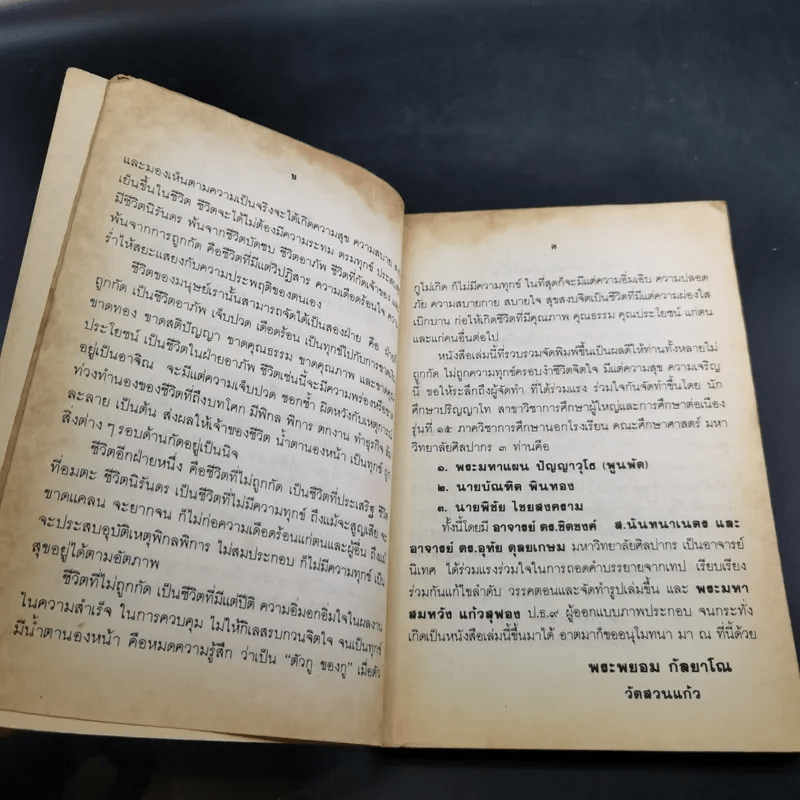 ข
และมองเห็นตามความเป็นจริงจะได้เกิดความสุข ความสบาย
เย็นขึ้นในชีวิต ชีวิตจะได้ไม่ต้องมีความระทม ตรมทุกข์
มีชีวิตนิรันดร พ้นจากชีวิตบัดซบ ชีวิตอาภัพ ชีวิตที่กัดเจ้าของ
พ้นจากการถูกกัด คือชีวิตที่มีแต่วิปฏิสาร ความเดือดร้อนใจ
ร่ำไห้สยะแสยงกับความประพฤติของตนเอง
ชีวิตของมนุษย์เรานั้นสามารถจัดได้เป็นสองฝ่าย คือ
ถูกกัด เป็นชีวิตอาภัพ เจ็บปวด เดือดร้อน เป็นทุกข์ไปกับการขาด
ขาดทอง ขาดสติปัญญา ขาดคุณธรรม ขาดคุณภาพ และขาดคุณ
ประโยชน์ เป็นชีวิตในฝ่ายอาภัพ ชีวิตเช่นนี้จะมีความพร่องหรือขาด
อยู่เป็นอาจิณ จะมีแต่ความเจ็บปวด ชอกช้ำ ผิดหวังกับเหตุการ
ท่วงทำนองของชีวิตที่ถึงบทโศก มีพิกล พิการ ตกงาน ทำธุรกิจ
ละลาย เป็นต้น ส่งผลให้เจ้าของชีวิต น้ำตานองหน้า เป็นทุกข์
สิ่งต่าง ๆ รอบด้านกัดอยู่เป็นนิจ
ชีวิตอีกฝ่ายหนึ่ง คือชีวิตที่ไม่ถูกกัด เป็นชีวิตที่ประเสริฐ
ที่อมตะ ชีวิตนิรันดร เป็นชีวิตที่ไม่มีความทุกข์ ถึงแม้จะสูญเสีย
ขาดแคลน จะยากจน ก็ไม่ก่อความเดือดร้อนแก่ตนและผู้อื่น ถึงแม้
จะประสบอุบัติเหตุพิกลพิการ ไม่สมประกอบ ก็ไม่มีความทุกข์ เป็น
สุขอยู่ได้ตามอัตภาพ
ชีวิตที่ไม่ถูกกัด เป็นชีวิตที่มีแต่ปีติ ความอิ่มอกอิ่มใจในผลงาน
ในความสำเร็จ ในการควบคุม ไม่ให้กิเลสรบกวนจิตใจ จนเป็นทุกข์
มีน้ำตานองหน้า คือหมดความรู้สึก ว่าเป็น "ตัวกู ของกู" เมื่อตัว
ค
กูไม่เกิด ก็ไม่มีความทุกข์ ในที่สุดก็จะมีแต่ความอิ่มเอิบ ความปลอด
ภัย ความสบายกาย สบายใจ สุขสงบจิตเป็นชีวิตที่มีแต่ความผ่องใส
เบิกบาน ก่อให้เกิดชีวิตที่มีคุณภาพ คุณธรรม คุณประโยชน์ แก่ตน
และแก่คนอื่นต่อไป
หนังสือเล่มนี้ที่รวบรวมจัดพิมพ์ขึ้นเป็นผลดีให้ท่านทั้งหลายไม่
ถูกกัด ไม่ถูกความทุกข์ครอบงำชีวิตจิตใจ มีแต่ความสุข ความเจริญ
นี้ ขอให้ระลึกถึงผู้จัดทำ ที่ได้ร่วมแรง ร่วมใจกันจัดทำขึ้นโดย นัก
ศึกษาปริญญาโท สาขาวิชาการศึกษาผู้ใหญ่และการศึกษาต่อเนื่อง
รุ่นที่ ๑๕ ภาควิชาการศึกษานอกโรงเรียน คณะศึกษาศาสตร์ มหา
วิทยาลัยศิลปากร ๓ ท่านคือ
๑. พระมหาแผน ปัญญาวุโธ (พูนพัด)
๒. นายบัณฑิต พินทอง
๓. นายพิชัย ไชยสงคราม
ทั้งนี้โดยมี อาจารย์ ดร.ชิดชงค์ ส.นันทนาเนตร และ
อาจารย์ ดร.อุทัย ดุลยเกษม มหาวิทยาลัยศิลปากร เป็นอาจารย์
นิเทศ ได้ร่วมแรงร่วมใจในการถอดคำบรรยายจากเทป เรียบเรียง
ร่วมกันแก้ไขลำดับ วรรคตอนและจัดทำรูปเล่มขึ้น และ พระมหา
สมหวัง แก้วสุฟอง ป.ธ.๙ ผู้ออกแบบภาพประกอบ จนกระทั่ง
เกิดเป็นหนังสือเล่มนี้ขึ้นมาได้ อาตมาก็ขออนุโมทนา มา ณ ที่นี้ด้วย
พระพยอม กัลยาโณ
วัดสวนแก้ว